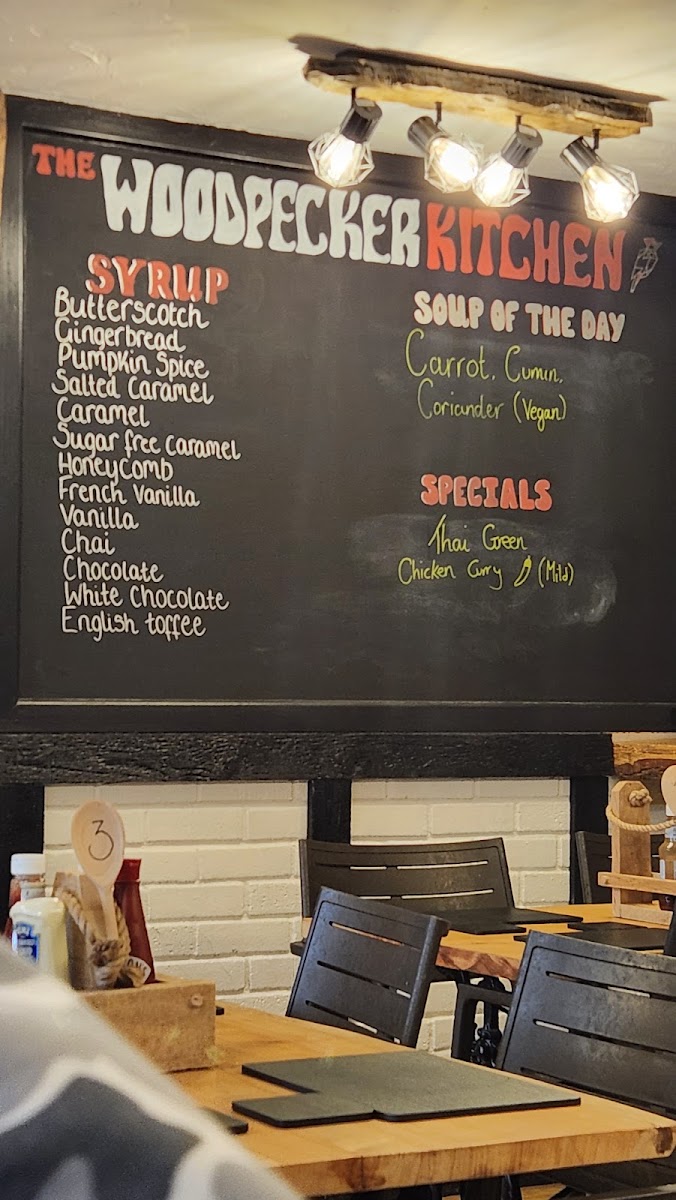 THE WOODPECKER KITCHEN
SYRUP
Butterscotch
Gingerbread
Pumpkin Spice
Salted Caramel
Caramel
Sugar free caramel
Honeycomb
French Vanilla
Vanilla
Chai
Chocolate
White Chocolate
English toffee
SOUP OF THE DAY
Carrot, Cumin,
Coriander (Vegan)
SPECIALS
Thai Green
Chicken Curry (Mild)
3